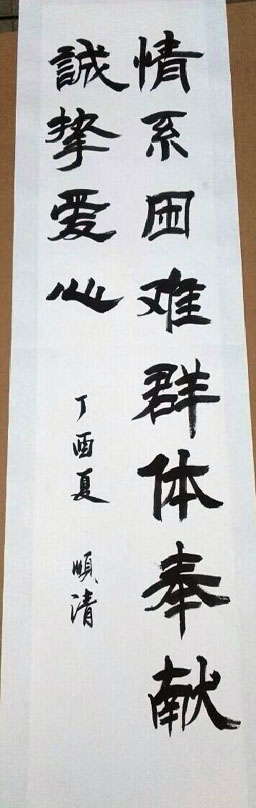 情系困难群体奉献
誠挚爱心
丁酉夏 順清